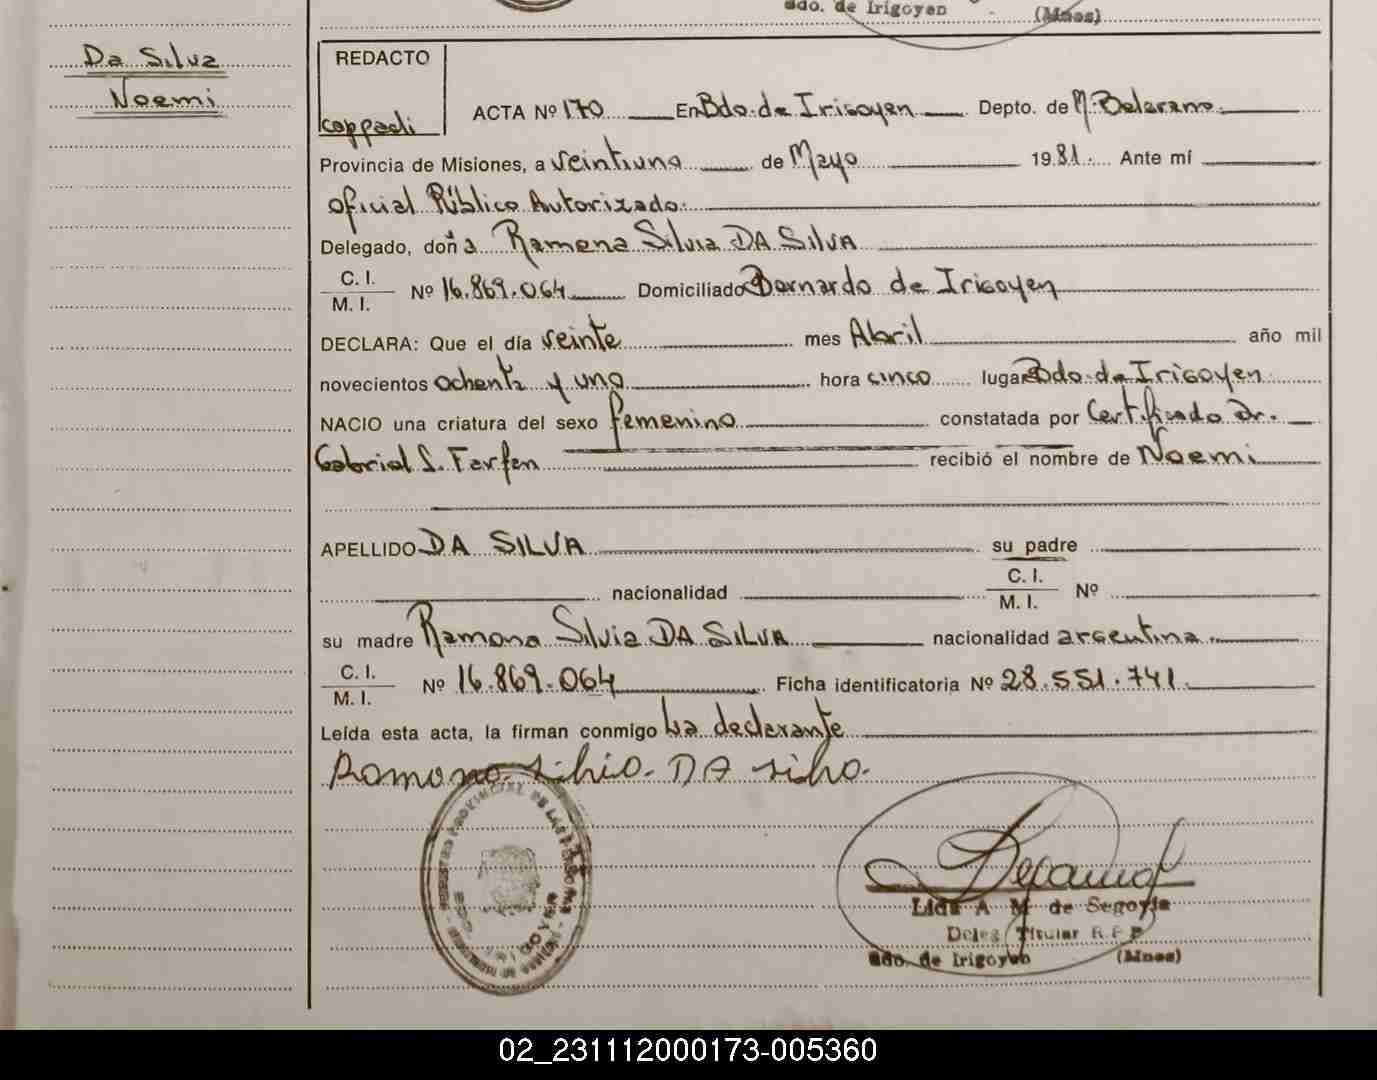 Bdo. de Irigoyen (Mnes)
Da Silva
Noemi
REDACTO
ACTA Nº 170 En Bdo. de Irigoyen Depto. de M. Belgrano
Provincia de Misiones, a veintiuno de Mayo 1981. Ante mí
Oficial Público Autorizado.
Delegado, doña Ramona Silvia DA SILVA
C. I.
M. I. Nº 16.869.064 Domiciliado Bernardo de Irigoyen
DECLARA: Que el día veinte mes Abril año mil
novecientos ochenta y uno hora cinco lugar Bdo. de Irigoyen
NACIO una criatura del sexo femenino constatada por Certificado Dr.
Gabriel S. Farfan recibió el nombre de Noemi
APELLIDO DA SILVA su padre
nacionalidad C. I.
M. I. Nº
su madre Ramona Silvia DA SILVA nacionalidad argentina
C. I.
M. I. Nº 16.869.064 Ficha identificatoria Nº 28.551.741
Leída esta acta, la firman conmigo La declarante
Ramona Silvia DA Silva
Lida A M de Segovia
Deleg Titular R.P.P
Bdo. de Irigoyen (Mnes)
02_231112000173-005360